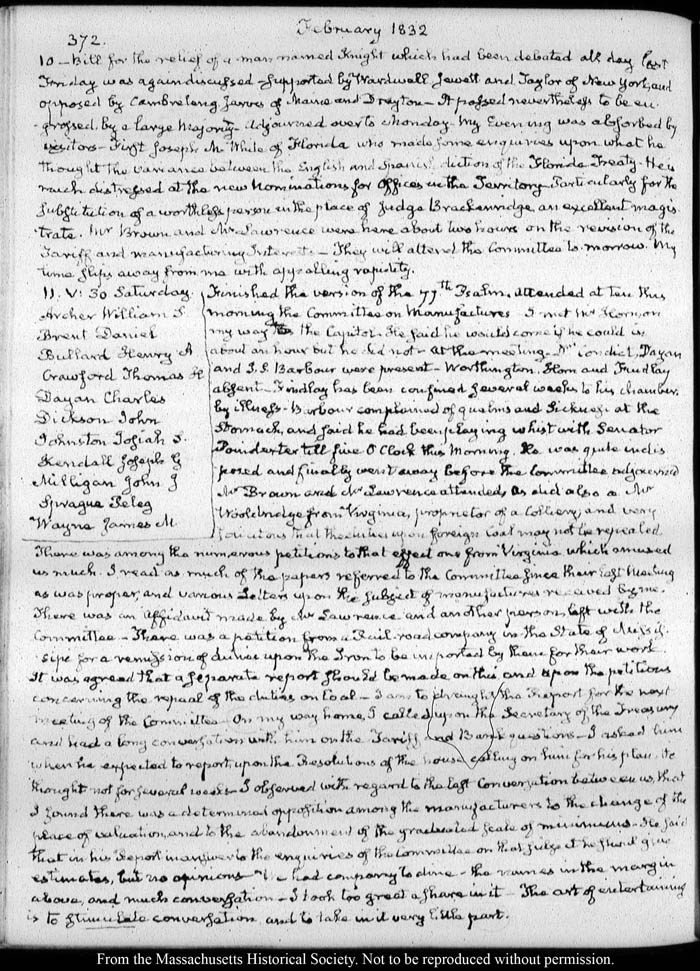 372.
February 1832
10 — Bill for the relief of a man named Knight which had been debated all day last
Friday was again discussed — supported by Wardwell Jewett and Taylor of New York, and
opposed by Cambreleng, Jarvis of Maine and Drayton — It passed nevertheless to be en-
grossed, by a large Majority — Adjourned over to Monday. My Evening was absorbed by
visitors — First Joseph M. White of Florida who made some enquiries upon what he
thought the variance between the English and Spanish diction of the Florida Treaty. He is
much distressed at the new Nominations for Offices in the Territory Particularly for the
substitution of a worthless person in the place of Judge Brackenridge an excellent magis-
trate. Mr Brown and Mr Lawrence were here about two hours on the revision of the
Tariff and manufacturing Interests — They will attend the Committee to-morrow. My
time slips away from me with appalling rapidity.
11. V: 30 Saturday.
Archer William S
Brent Daniel
Bullard Henry A
Crawford Thomas H
Dayan Charles
Dickson John
Johnston Josiah S.
Kendall Joseph G
Milligan John J
Sprague Peleg
Wayne James M.
Finished the version of the 77th Psalm, attended at ten this
morning the Committee on Manufactures I met Mr Horn on
my way to the Capitol. He said he would come if he could in
about an hour but he did not — At the meeting — Condict, Dayan
and J. S. Barbour were present — Worthington, Horn and Findlay
absent — Findlay has been confined several weeks to his chamber,
by illness — Barbour complained of qualms and Sickness at the
Stomach, and said he had been playing whist with Senator
Poindexter till five O'Clock this Morning. He was quite indis-
posed and finally went away before the Committee adjourned
Mr Brown and Mr Lawrence attended, as did also a Mr
Wooldridge from Virginia, proprietor of a Colliery, and very
solicitous that the duties upon foreign Coal may not be repealed
There was among the numerous petitions to that effect one from Virginia which amused
us much. I read as much of the papers referred to the Committee since their last Meeting
as was proper, and various Letters upon the subject of manufactures received by me.
There was an affidavit made by Mr Lawrence and another person left with the
Committee — There was a petition from a Rail-road company in the State of Missis-
sippi for a remission of duties upon the Iron to be imported by them for their work.
It was agreed that a separate report should be made on this, and upon the petitions
concerning the repeal of the duties on Coal — I am to draught the Report for the next
meeting of the Committee — On my way home, I called upon the Secretary of the Treasury
and had a long conversation with him on the Tariff and Bank questions — I asked him
when he expected to report upon the Resolutions of the House calling on him for his plan. He
thought not for several weeks — I observed with regard to the last Conversation between us, that
I found there was a determined opposition among the manufacturers to the change of the
place of valuation, and to the abandonment of the graduated scale of minimums — He said
that in his Report in answer to the enquiries of the Committee on that subject he should give
estimates, but no opinions — We had company to dine — the names in the margin
above, and much conversation — I took too great a share in it — The art of entertaining
is to stimulate conversation, and to take in it very little part.
From the Massachusetts Historical Society. Not to be reproduced without permission.